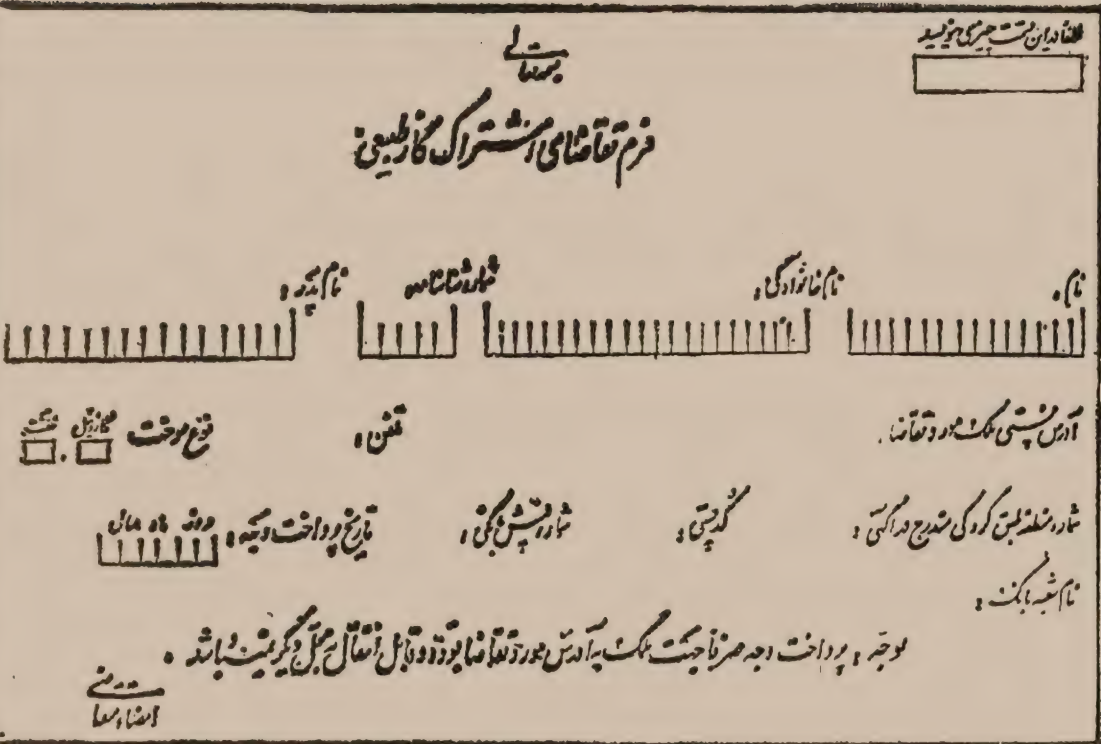 لطفا در این قسمت چیزی ننویسید
بسمه تعالی
فرم تقاضای اشتراک گاز طبیعی:
نام: نام خانوادگی: شماره شناسنامه: نام پدر:
آدرس پستی ملک مورد تقاضا: تلفن: نوع سوخت گازوئیل نفت
شماره منطقه طبق کروکی مندرج در آگهی: کد پستی: شماره فیش بانکی: تاریخ پرداخت وجه: روز ماه سال
نام شعبه بانک:
توجه: پرداخت وجه صرفا جهت ملک به آدرس مورد تقاضا بوده و قابل انتقال به محل دیگر نمیباشد.
امضاء متقاضی